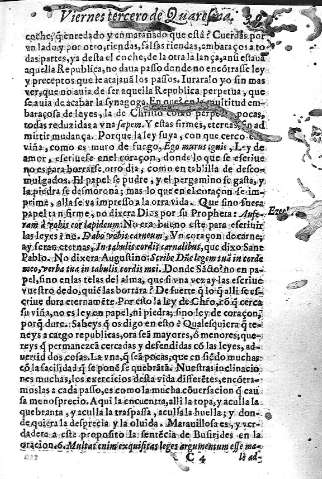 Viernes tercero de Quaresma. 39
coche, q̃ enredado y enmarañado que està? Cuerdas por
vn lado, y por otro, riendas, salsas riendas, embaraços a to
das partes, ya desta el coche, de la otra la lança, ansi estaua
aquella Republica, no daua passo donde no encõtrasse ley
y preceptos que le atajauã los passos. Iuraralo yo sin mas
ver, que no auia de ser aquella Republica perpetua, que
se auia de acabar la synagoga. En que es la multitud em-
baraçosa de leyes, la de Christo como perpetua, pocas,
todas reduzidas a vna sæpem. Y estas firmes, eternas, no ad
mitir mudança. Porque la ley suya, con que cerco su
viña, como es muro de fuego, Ego murus ignis, Ley de
amor, escriuese en el coraçon, donde lo que se escriue
no es para borrarse otro dia, como en tablilla de desco-
mulgados. El papel se pudre, y el pergamino se gasta, y
la piedra se desmorona; mas lo que en el coraçon se im-
prime, alla se va impresso a la otra vida. Que sino fuera
papel tan firme, no dixera Dios por su Propheta: Aufe-
ram à vobis cor lapideum: No era bueno este para escriuir
las leyes? no. Dabo vobis carneum, Vn coraçon de carne,
ay seran eternas, In tabulis cordis carnalibus, que dixo San
Pablo. No dixera Augustino: Scribe Dñe legem tuã in corde
meo, verba tua in tabulis cordis mei. Donde Sãcto? no en pa-
pel, sino en las telas del alma, que si vna vez ay las escriue
vuestro dedo, quiẽ las borrara? De suerte q̃ lo q̃ alli se es-
criue dura eternamẽte. Por esto la ley de Chro, cõ q̃ cerca
su viña, no es ley en papel, ni piedra, sino ley de coraçon,
porq̃ dure. Sabeys q̃ os digo en esto? Qualesquiera q̃ te-
neys a cargo republicas, ora seã mayores, ò menores, que-
reys q̃ permanezcã cercadas y defendidas cõ las leyes, ad-
uertid dos cosas. La vna, q̃ seã pocas, que en siẽdo muchas
cõ la facilidad q̃ se ponẽ se quebrãtã. Nuestras inclinacio
nes muchas, los exercicios desta vida differẽtes, encõtra-
moslas a cada passo, es como la mucha cõuersacion q̃ cau
sa menosprecio. Aqui la encuentra, alli la topa, y aculla la
quebranta, y aculla la traspassa, aculla la huella; y don-
de quiera la desprecia y la oluida. Marauillosa es, y ver-
dadera a este proposito la sentẽcia de Busirides en la
oracion. 6. Multas enim exquisitas leges argumentum esse ma-
C 4
Ezec.